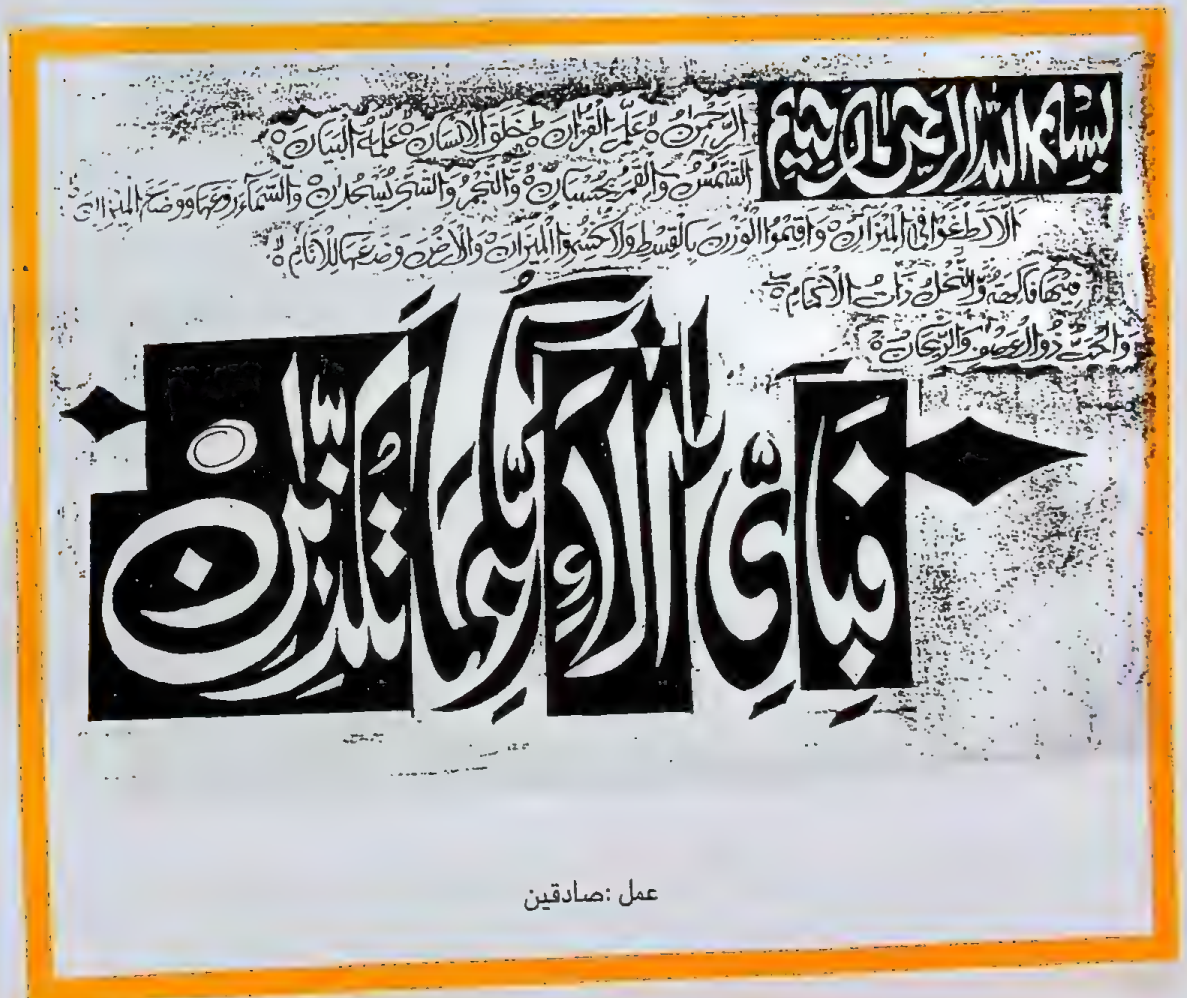 بسم الله الرحمن الرحيم
الرَّحْمٰنُ ۝ عَلَّمَ الْقُرْاٰنَ ۝ خَلَقَ الْاِنْسَانَ ۝ عَلَّمَهُ الْبَيَانَ ۝
اَلشَّمْسُ وَالْقَمَرُ بِحُسْبَانٍ ۝ وَّالنَّجْمُ وَالشَّجَرُ يَسْجُدٰنِ ۝ وَالسَّمَآءَ رَفَعَهَا وَوَضَعَ الْمِيْزَانَ ۝
اَلَّا تَطْغَوْا فِى الْمِيْزَانِ ۝ وَاَقِيْمُوا الْوَزْنَ بِالْقِسْطِ وَلَا تُخْسِرُوا الْمِيْزَانَ ۝ وَالْاَرْضَ وَضَعَهَا لِلْاَنَامِ ۝
فِيْهَا فَاكِهَةٌ وَّالنَّخْلُ ذَاتُ الْاَكْمَامِ ۝
وَالْحَبُّ ذُو الْعَصْفِ وَالرَّيْحَانُ ۝
فَبِاَىِّ اٰلَآءِ رَبِّكُمَا تُكَذِّبٰنِ
عمل :صادقين